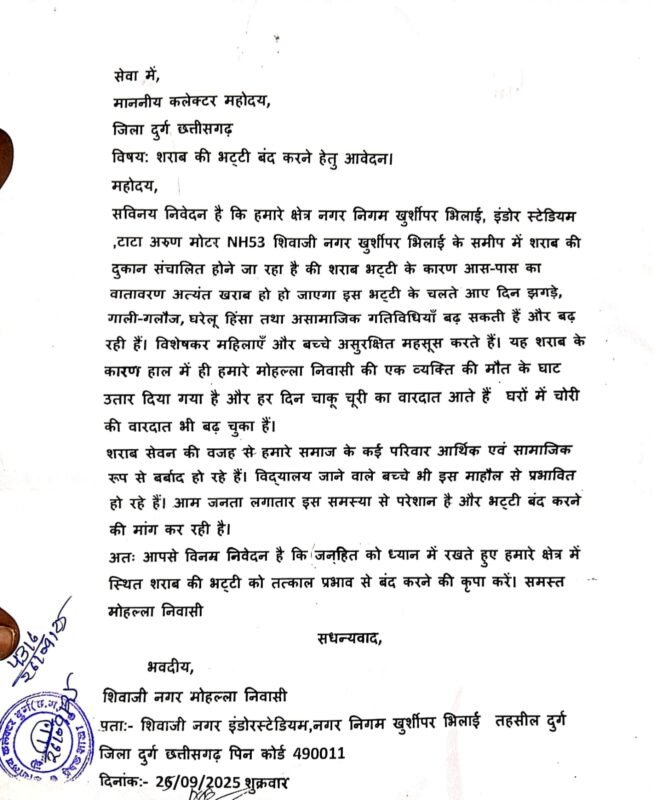 सेवा में,
माननीय कलेक्टर महोदय,
जिला दुर्ग छत्तीसगढ़
विषय: शराब की भट्टी बंद करने हेतु आवेदन।
महोदय,
सविनय निवेदन है कि हमारे क्षेत्र नगर निगम खुर्शीपर भिलाई, इंडोर स्टेडियम
,टाटा अरुण मोटर NH53 शिवाजी नगर खुर्शीपर भिलाई के समीप में शराब की
दुकान संचालित होने जा रहा है की शराब भट्टी के कारण आस-पास का
वातावरण अत्यंत खराब हो हो जाएगा इस भट्टी के चलते आए दिन झगड़े,
गाली-गलौज, घरेलू हिंसा तथा असामाजिक गतिविधियाँ बढ़ सकती हैं और बढ़
रही हैं। विशेषकर महिलाएँ और बच्चे असुरक्षित महसूस करते हैं। यह शराब के
कारण हाल में ही हमारे मोहल्ला निवासी की एक व्यक्ति की मौत के घाट
उतार दिया गया है और हर दिन चाकू चूरी का वारदात आते हैं घरों में चोरी
की वारदात भी बढ़ चुका हैं।
शराब सेवन की वजह से हमारे समाज के कई परिवार आर्थिक एवं सामाजिक
रूप से बर्बाद हो रहे हैं। विद्यालय जाने वाले बच्चे भी इस माहौल से प्रभावित
हो रहे हैं। आम जनता लगातार इस समस्या से परेशान है और भट्टी बंद करने
की मांग कर रही है।
अतः आपसे विनम्र निवेदन है कि जनहित को ध्यान में रखते हुए हमारे क्षेत्र में
स्थित शराब की भट्टी को तत्काल प्रभाव से बंद करने की कृपा करें। समस्त
मोहल्ला निवासी
सधन्यवाद,
भवदीय,
शिवाजी नगर मोहल्ला निवासी
पता:- शिवाजी नगर इंडोरस्टेडियम,नगर निगम खुर्शीपर भिलाई तहसील दुर्ग
जिला दुर्ग छत्तीसगढ़ पिन कोर्ड 490011
दिनांक:- 26/09/2025 शुक्रवार
4316
26/09/25